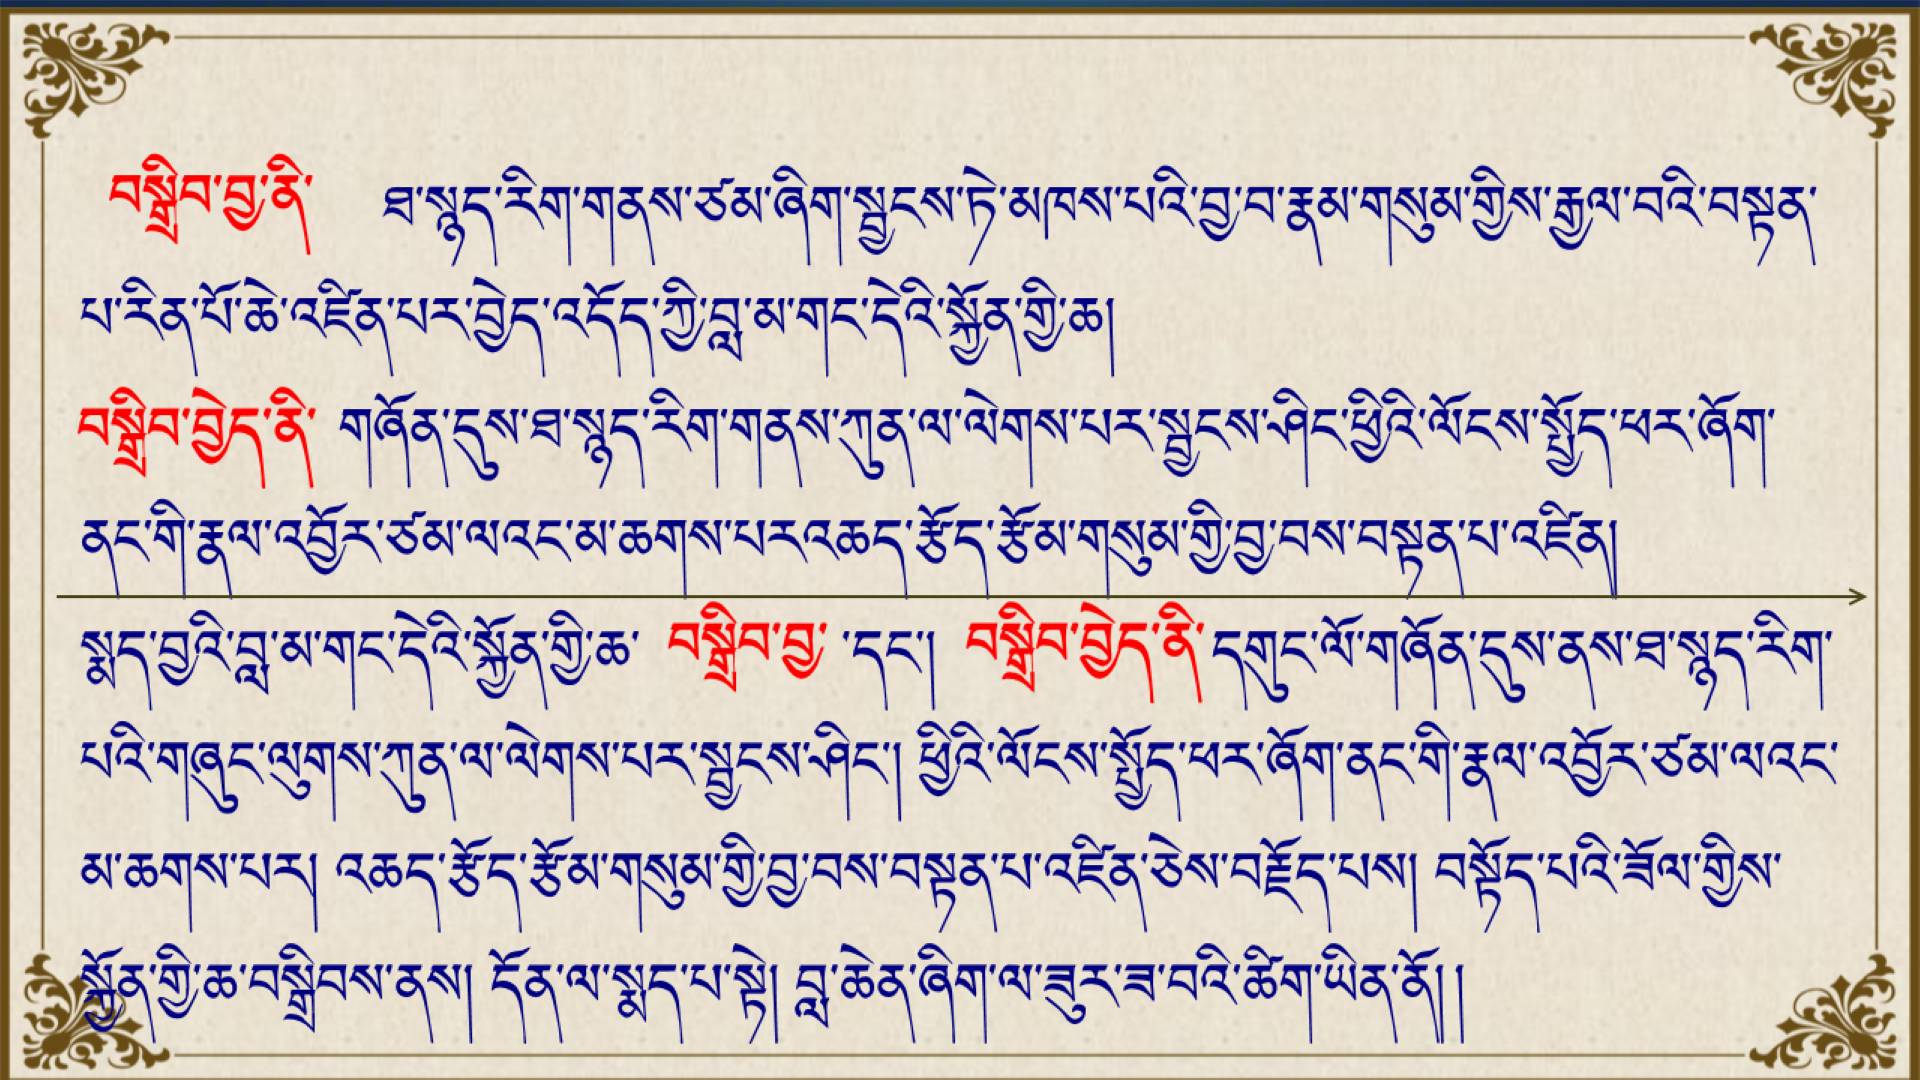 བསྒྲིབ་བྱ་ནི་ ཐ་སྙད་རིག་གནས་ཙམ་ཞིག་སྦྱངས་ཏེ་མཁས་པའི་བྱ་བ་རྣམ་གསུམ་གྱིས་རྒྱལ་བའི་བསྟན་
པ་རིན་པོ་ཆེ་འཛིན་པར་བྱེད་འདོད་ཀྱི་བླ་མ་གང་དེའི་སྐྱོན་གྱི་ཆ།
བསྒྲིབ་བྱེད་ནི་ གཞོན་དུས་ཐ་སྙད་རིག་གནས་ཀུན་ལ་ལེགས་པར་སྦྱངས་ཤིང་ཕྱིའི་ལོངས་སྤྱོད་ཕར་ཞོག་
ནང་གི་རྣལ་འབྱོར་ཙམ་ལའང་མ་ཆགས་པརའཆད་རྩོད་རྩོམ་གསུམ་གྱི་བྱ་བས་བསྟན་པ་འཛིན།
སྨད་བྱའི་བླ་མ་གང་དེའི་སྐྱོན་གྱི་ཆ་ བསྒྲིབ་བྱ་ ་དང་། བསྒྲིབ་བྱེད་ནི་དགུང་ལོ་གཞོན་དུས་ནས་ཐ་སྙད་རིག་
པའི་གཞུང་ལུགས་ཀུན་ལ་ལེགས་པར་སྦྱངས་ཤིང་། ཕྱིའི་ལོངས་སྤྱོད་ཕར་ཞོག་ནང་གི་རྣལ་འབྱོར་ཙམ་ལའང་
མ་ཆགས་པར། འཆད་རྩོད་རྩོམ་གསུམ་གྱི་བྱ་བས་བསྟན་པ་འཛིན་ཅེས་བརྗོད་པས། བསྟོད་པའི་ཟོལ་གྱིས་
སྐྱོན་གྱི་ཆ་བསྒྲིབས་ནས། དོན་ལ་སྨད་པ་སྟེ། བླ་ཆེན་ཞིག་ལ་ཟུར་ཟ་བའི་ཚིག་ཡིན་ནོ།།